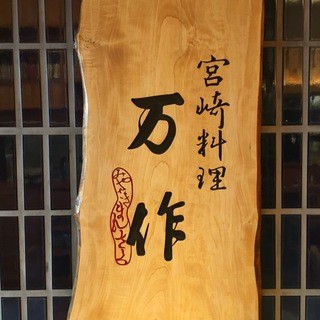 宮崎料理
万作